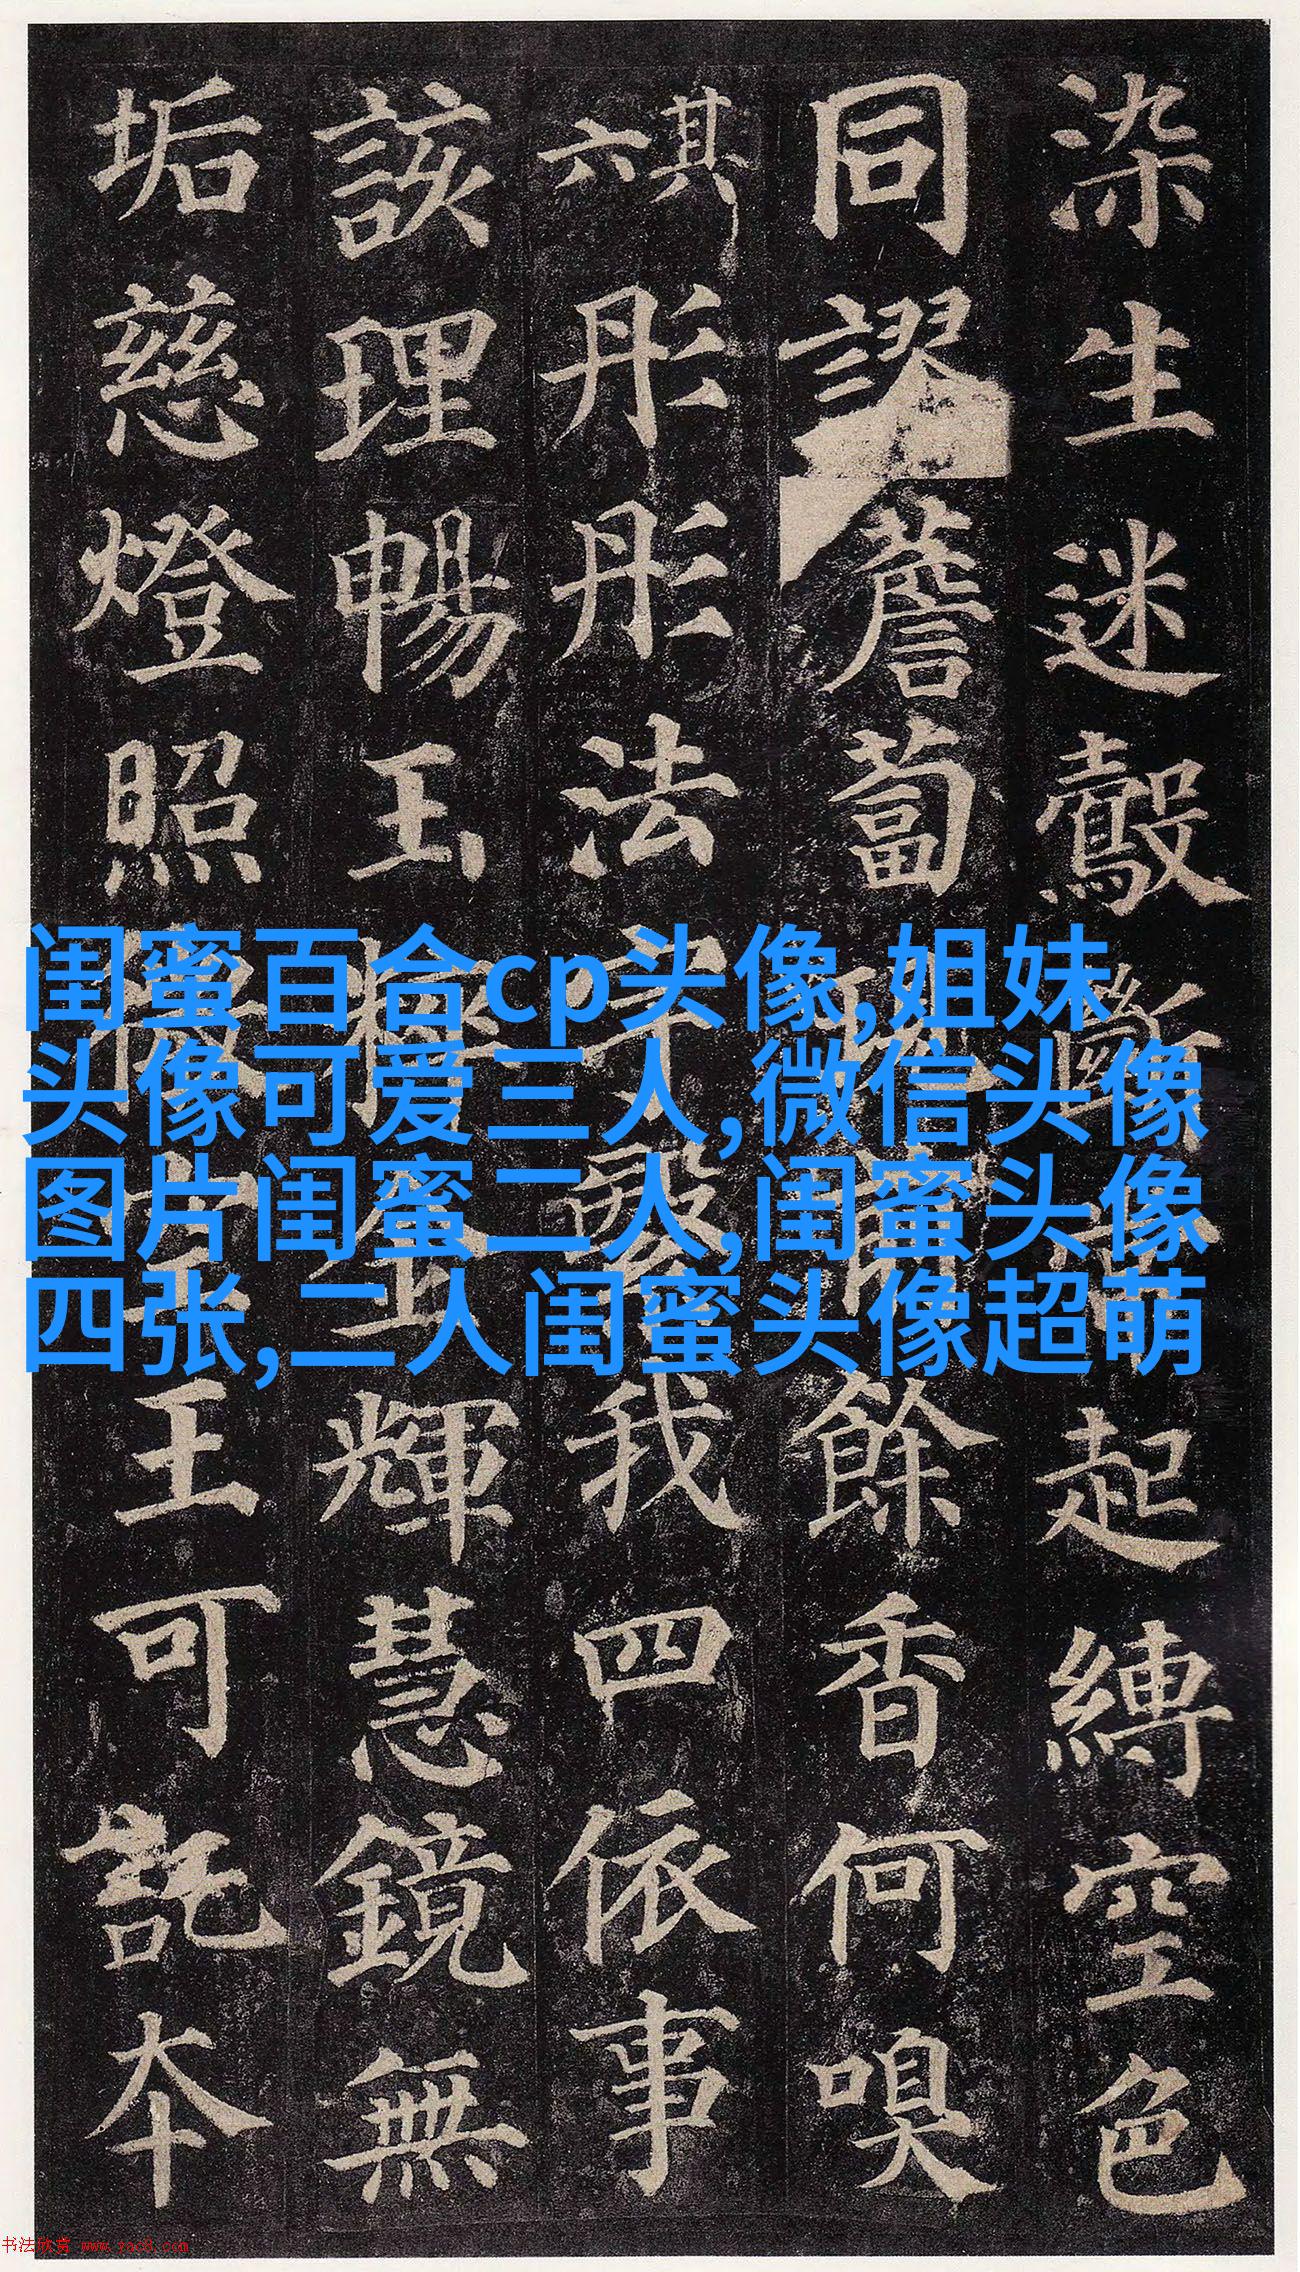 染生迷鷇斷 起縛空色
同謬薝蔔 餘香何嗅
其
六
彤彤法 我四依事
該理暢玉 輝慧鏡無
垢慈燈照 王可託本
闺蜜百合cp头像,姐妹
头像可爱三人,微信头像
图片闺蜜二人,闺蜜头像
四张,二人闺蜜头像超萌
书法欣赏 www.yac8.com